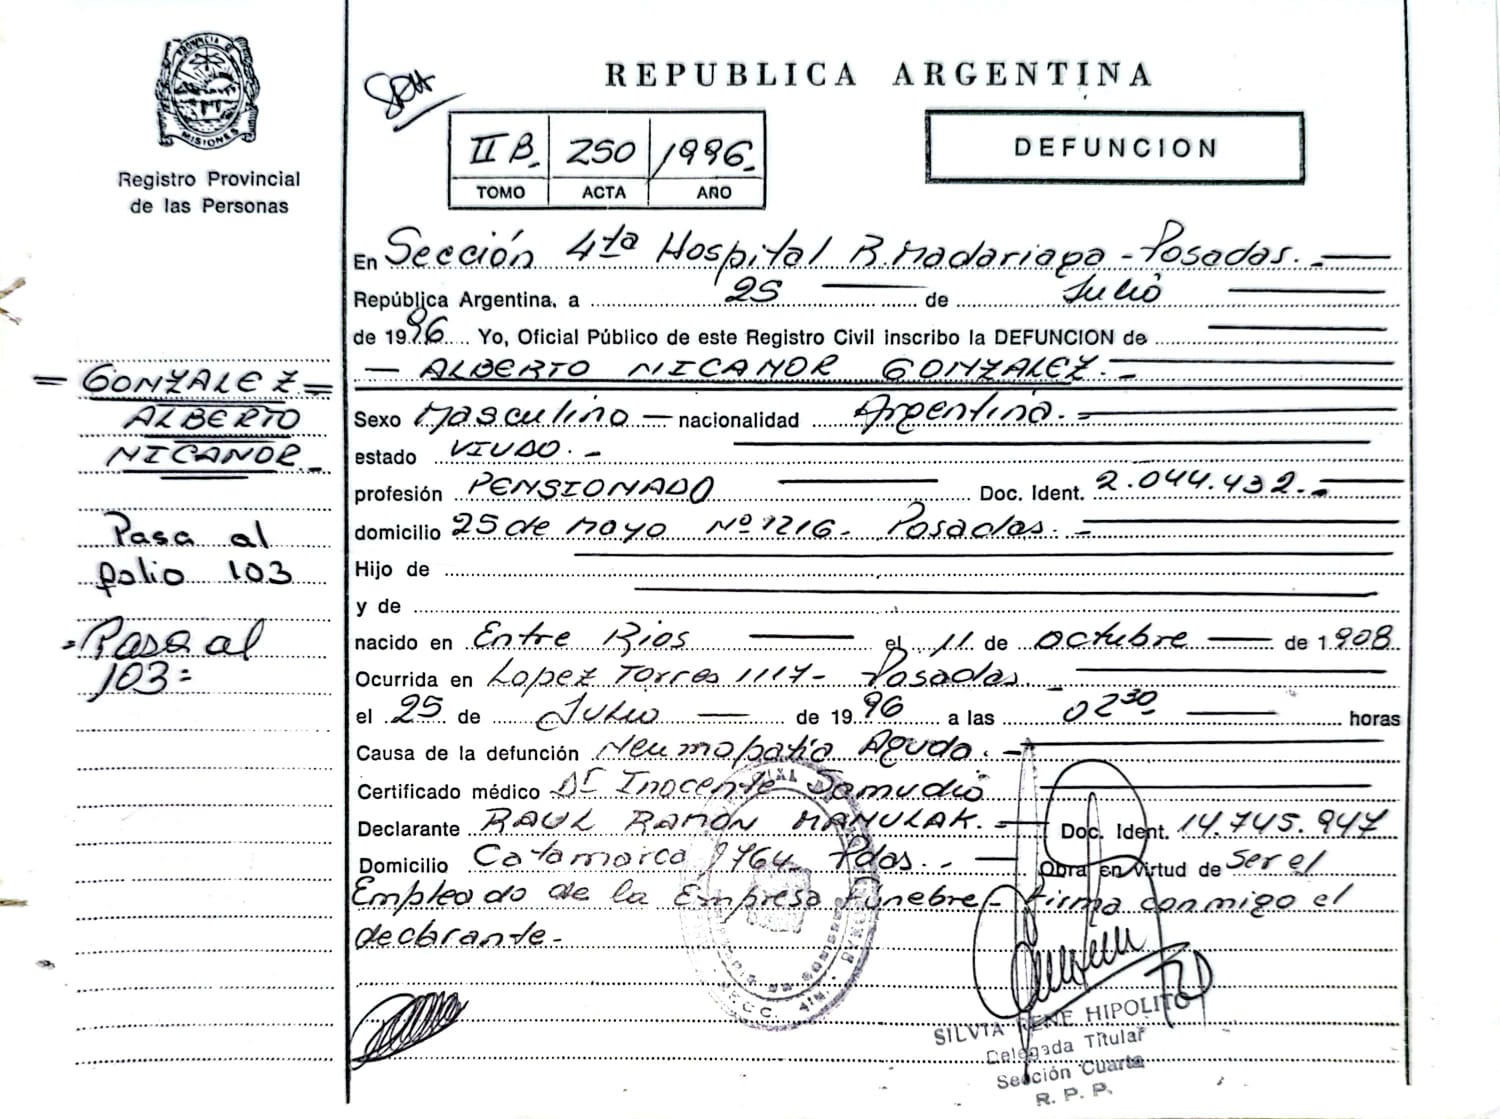 PROVINCIA D
MISIONES
Registro Provincial
de las Personas
REPUBLICA ARGENTINA
II B. 250 1996.
TOMO ACTA AÑO
DEFUNCION
En Sección 4ta Hospital R. Madariaga - Posadas. -
República Argentina, a 25 de Julio
de 1996 Yo, Oficial Público de este Registro Civil inscribo la DEFUNCION de
— ALBERTO NICANOR GONZALEZ. -
= GONZALEZ =
ALBERTO
NICANOR -
Sexo Masculino — nacionalidad Argentina. -
estado VIUDO. -
profesión PENSIONADO Doc. Ident. 2.044.432. -
domicilio 25 de Mayo Nº 1216 - Posadas. -
Hijo de
y de
Pasa al
folio 103
= Pasa al
103 =
nacido en Entre Rios el 11 de octubre de 1908
Ocurrida en Lopez Torres 1117 - Posadas -
el 25 de Julio de 1996 a las 02 30 horas
Causa de la defunción Neumopatia Aguda. -
Certificado médico Dr Inocente Samudio
Declarante RAUL RAMON MANULAK. - Doc. Ident. 14.745.947
Domicilio Catamarca 1764 Pdas. - Obra en virtud de Ser el
Empleado de la Empresa Funebre - firma conmigo el
declarante -
SILVIA RENE HIPOLITO
Delegada Titular
Sección Cuarta
R. P. P.